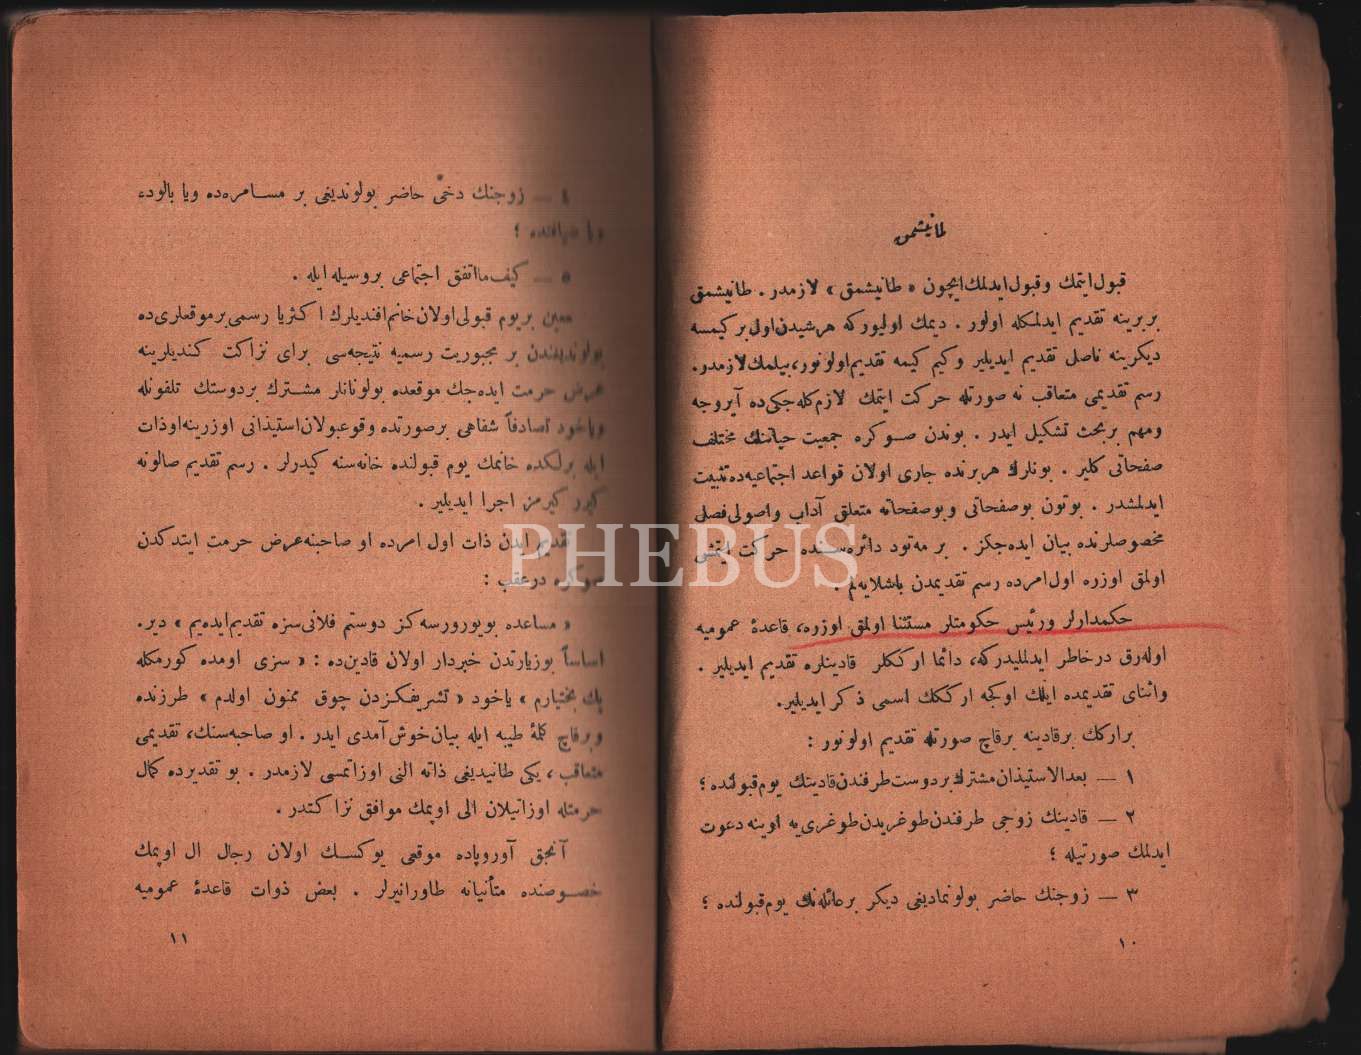 طانیشمق
قبول ایتمك وقبول ایدلمك ایچون « طانیشمق » لازمدر . طانیشمق
بربرینه تقدیم ایدلمکله اولور . دیمك اولیورکه هرشیدن اول بر کیمسه
دیکرینه ناصل تقدیم ایدیلیر وکیم کیمه تقدیم اولونور، بیلمك لازمدر.
رسم تقدیمی متعاقب نه صورتله حرکت ایتمك لازم کله جکی ده آیروجه
ومهم بربحث تشکیل ایدر . بوندن صوکره جمعیت حیاتنك مختلف
صفحاتی کلیر . بونلرك هربرنده جاری اولان قواعد اجتماعیه ده تثبیت
ایدلمشدر . بوتون بوصفحاتی وبوصفحاته متعلق آداب واصولی فصل
مخصوصلرنده بیان ایده جکز . بر مه تود دائره سنده حرکت ایتمش
اولمق اوزره اول امرده رسم تقدیمدن باشلایه لم .
حکمدارلر ورئیس حکومتلر مستثنا اولمق اوزره، قاعدهٔ عمومیه
اوله رق درخاطر ایدلملیدرکه، دائما ارککلر قادینلره تقدیم ایدیلیر .
واثنای تقدیمده ایلك اوکجه ارککك اسمی ذکر ایدیلیر.
برارکك برقادینه برقاچ صورتله تقدیم اولونور :
١ — بعدالاستیذان مشترك بردوست طرفندن قادینك یوم قبولنده ؛
٢ — قادینك زوجی طرفندن طوغریدن طوغری یه اوینه دعوت
ایدلمك صورتیله ؛
٣ — زوجنك حاضر بولونمادیغی دیکر برعائله نك یوم قبولنده ؛
١٠
٤ — زوجنك دخی حاضر بولوندیغی بر مسامره ده ویا بالوده
ویا ضیافتده ؛
٥ — کیف ما اتفق اجتماعی بروسیله ایله .
معین بریوم قبولی اولان خانم افندیلرك اکثریا رسمی برموقعلری ده
بولوندیغندن بر مجبوریت رسمیه نتیجه سی برای نزاکت کندیلرینه
عرض حرمت ایده جك موقعده بولونانلر مشترك بردوستك تلفونله
ویاخود تصادفاً شفاهی برصورتده وقوعبولان استیذانی اوزرینه اوذات
ایله برلکده خانمك یوم قبولنده خانه سنه کیدرلر . رسم تقدیم صالونه
کیرر کیرمز اجرا ایدیلیر .
تقدیم ایدن ذات اول امرده او صاحبنه عرض حرمت ایتدکدن
صوکره درعقب :
« مساعده بویورورسه کز دوستم فلانی سزه تقدیم ایده یم » دیر.
اساساً بوزیارتدن خبردار اولان قادین ده : « سزی اومده کورمکله
پك بختیارم » یاخود « تشریفکزدن چوق ممنون اولدم » طرزنده
وبرقاچ کلمهٔ طیبه ایله بیان خوش آمدی ایدر . او صاحبه سنك، تقدیمی
متعاقب ، یکی طانیدیغی ذاته النی اوزاتمسی لازمدر . بو تقدیرده کمال
حرمتله اوزاتیلان الی اوپمك موافق نزاکتدر .
آنجق آوروپاده موقعی یوکسك اولان رجال ال اوپمك
خصوصنده متأنیانه طاورانیرلر . بعض ذوات قاعدهٔ عمومیه
١١
PHEBUS